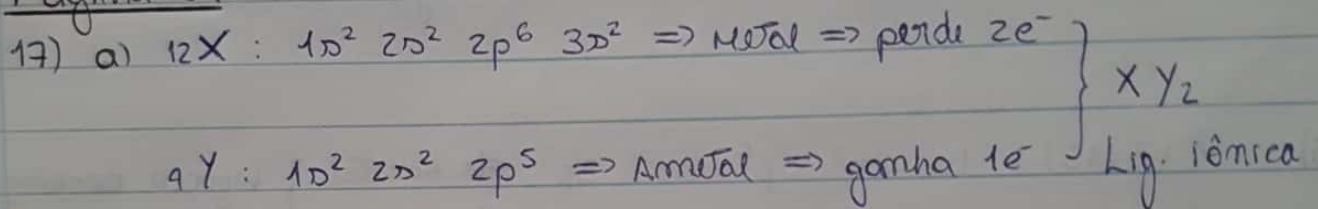 17) a) 12X : 1s² 2s² 2p⁶ 3s² => Metal => perde 2e⁻
XY₂
9Y : 1s² 2s² 2p⁵ => Ametal => ganha 1e⁻ Lig. iônica